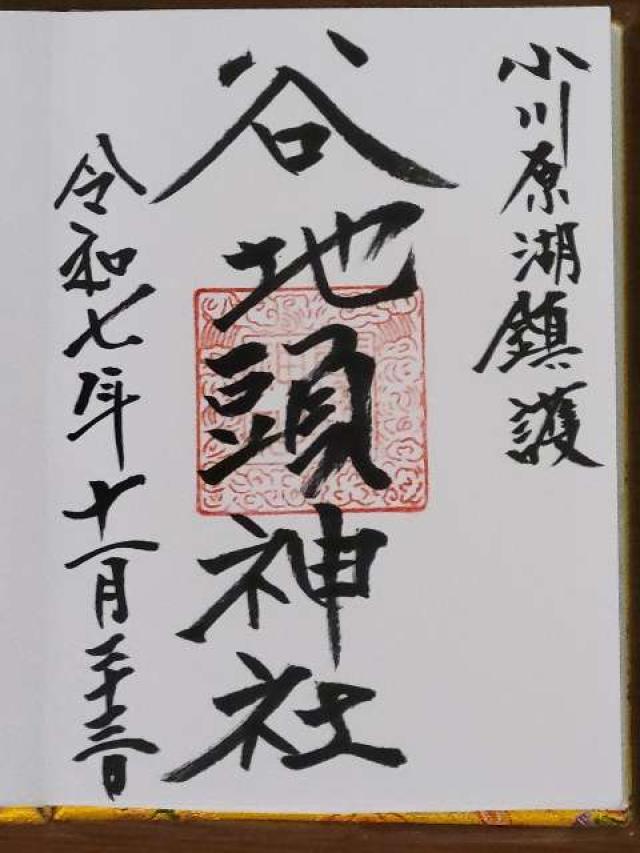 小川原湖鎮護
谷地頭神社
令和七年十一月二十三日